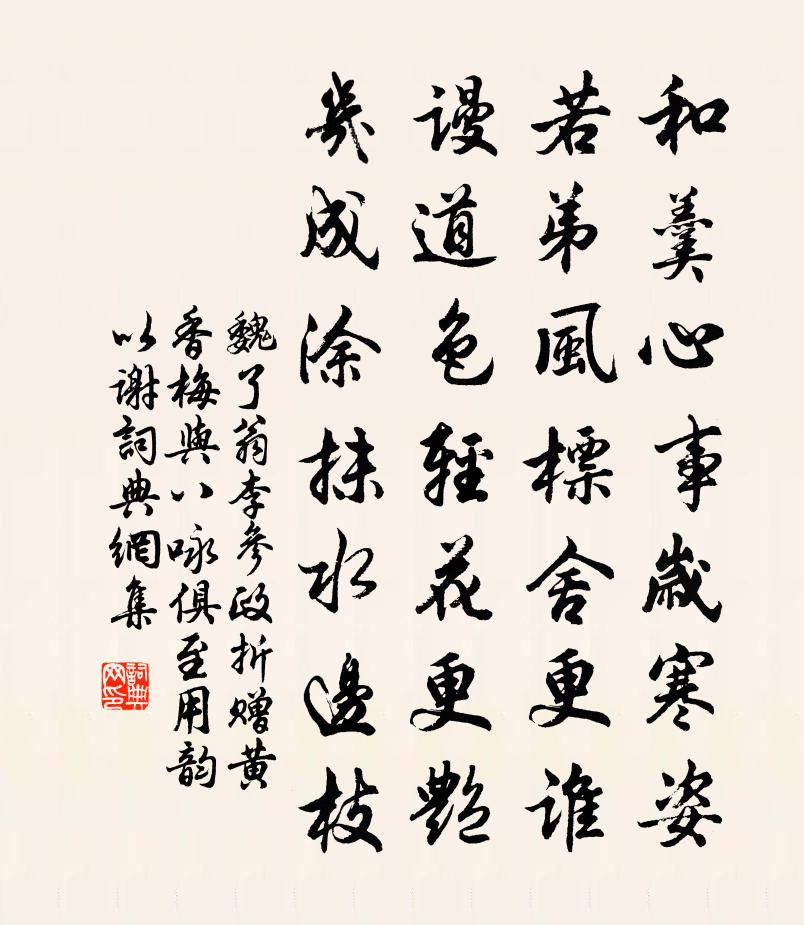 和羹心事歲寒姿
若弟風標舍更誰
謾道色輕花更艷
幾成涂抹水邊枝
魏了翁李參政折贈黃
香梅與八咏俱至用韵
以謝詞典網集
詞典網印